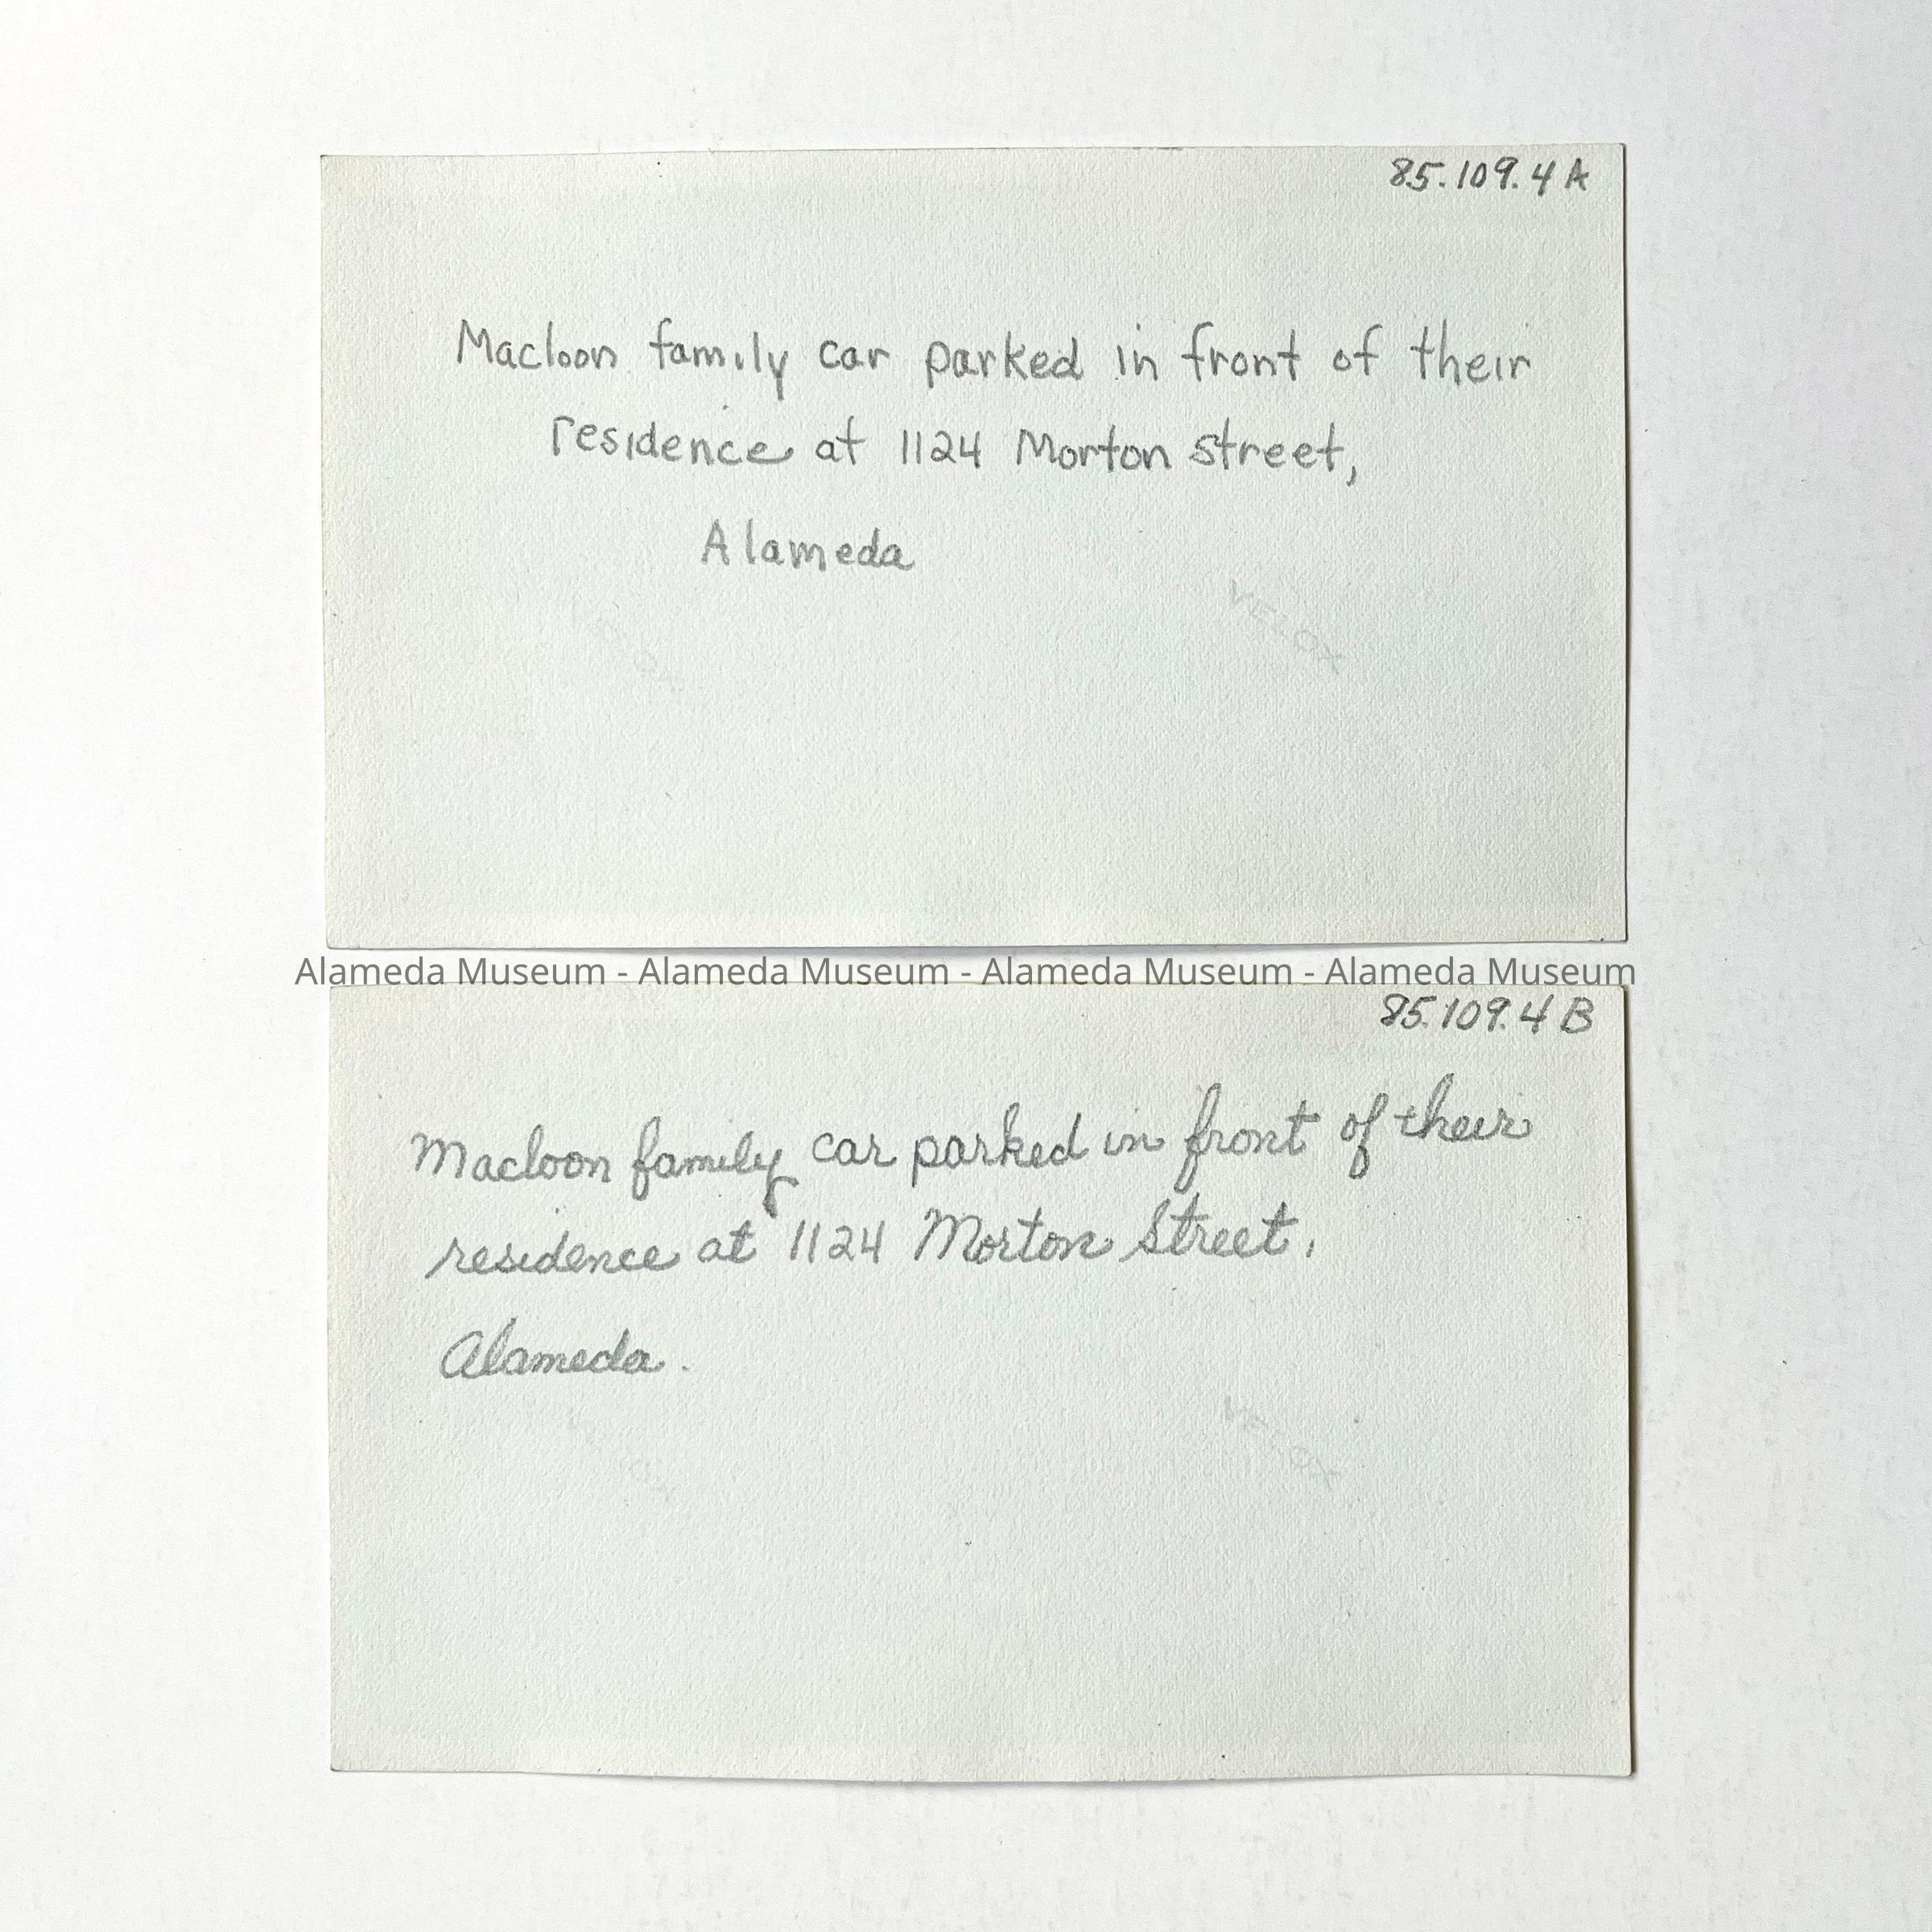 85.109.4 A
Macloon family car parked in front of their
residence at 1124 Morton Street,
Alameda
VELOX VELOX
Alameda Museum - Alameda Museum - Alameda Museum - Alameda Museum
85.109.4 B
Macloon family car parked in front of their
residence at 1124 Morton Street,
Alameda.
VELOX